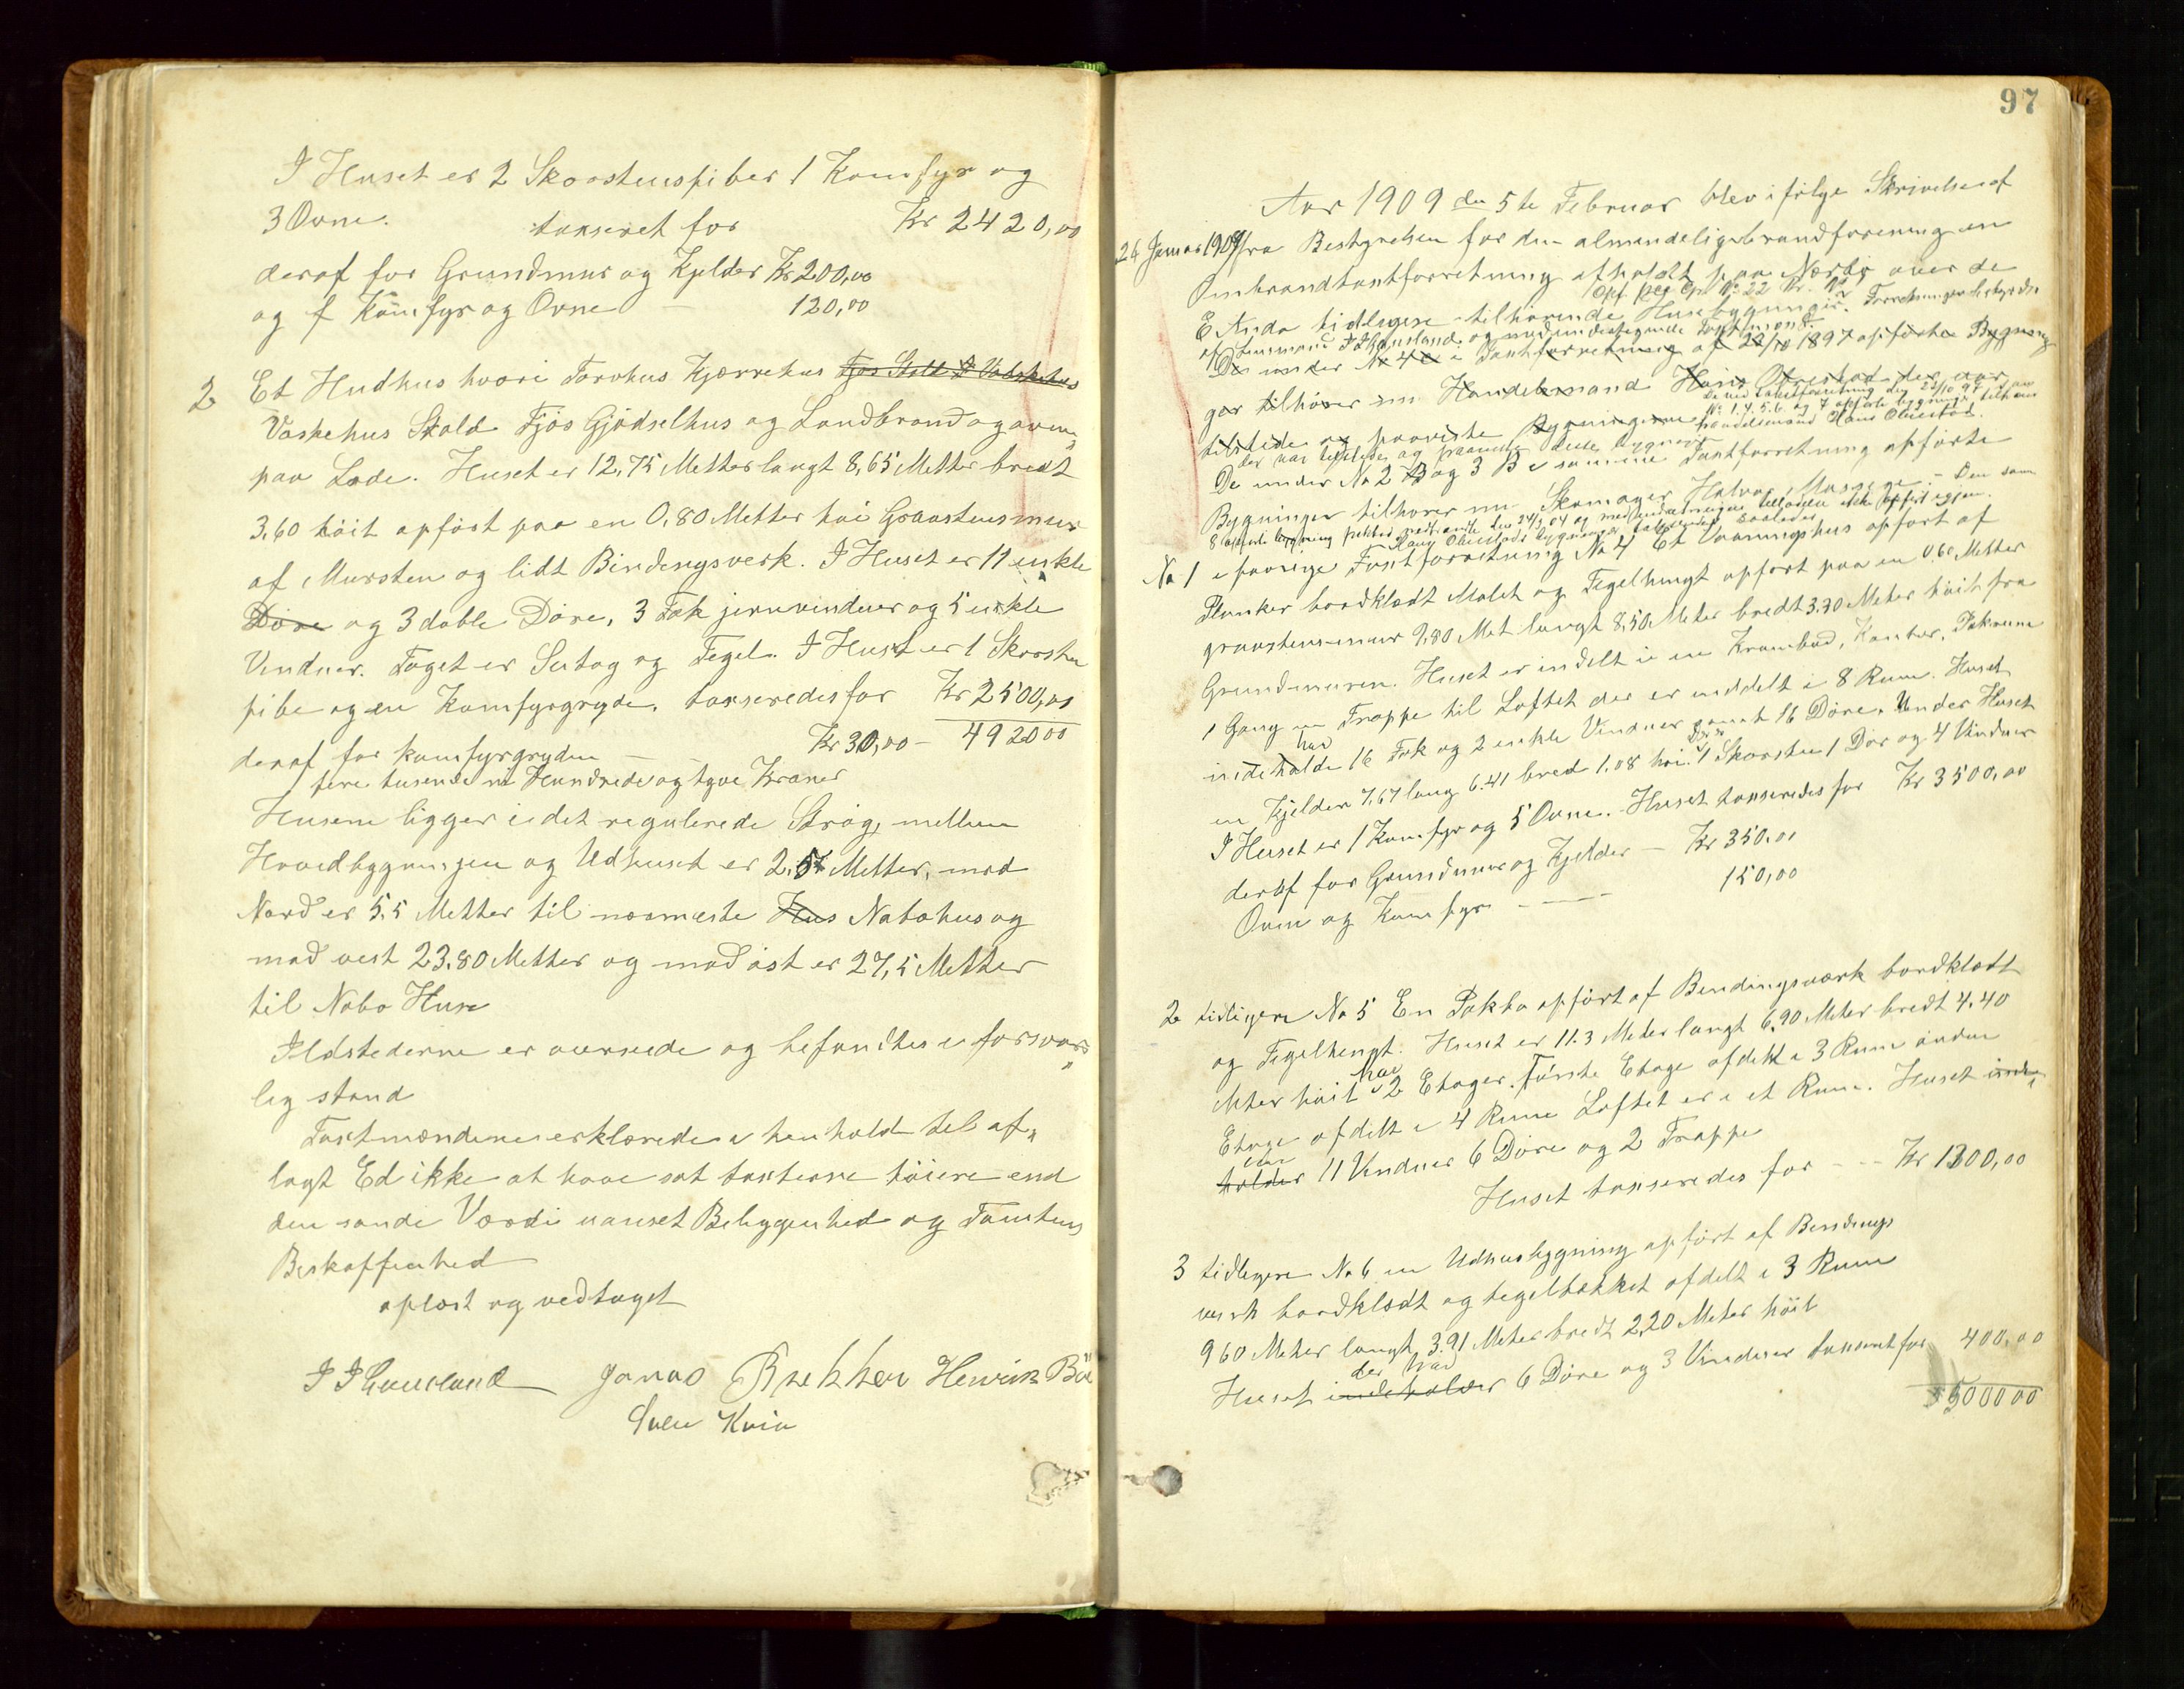 I Huset er 2 Skorstenspiber 1 Komfyr og
3 Ovne. takseret for Kr 2420,00
deraf for Grundmur og Kjelder Kr 200,00
og f Komfyr og Ovne — 120,00
2 Et Hudhus hvori Torvhus Kjærrehus Fjøs Stald & Vaskehus
Vaskehus Stald Fjøs Gjødselhus og Landbrand og oven
paa Lade. Huset er 12,75 Metter langt 8,65 Metter bredt
3,60 høit opført paa en 0,80 Metter høi Graastensmur
af Mursten og lidt Bindingsverk. I Huset er 11 enkle
Døre og 3 doble Døre, 3 Fak jernvinduer og 5 enkle
Vinduer. Taget er Sutag og Tegel. I Huset er 1 Skorsten
pibe og en Komfyrgryde, takseredes for Kr 2500,00
deraf for komfyrgryden — Kr 30,00 — 4920 00
fire tusende ni Hundrede og tyve Kroner
Husene ligger i det regulerede Strøg, mellem
Hovedbygningen og Udhuset er 2.57 Metter, mod
Nord er 5.5 Metter til nærmeste Hus Nabohus og
mod vest 23.80 Metter og mod øst er 27,5 Metter
til Nabo Huse
Ildstederne er overseede og befandtes i forsvar„
lig stand
Taxtmændene erklærede i henhold til af„
lagt Ed ikke at have sat taxterne høiere end
den sande Værdi uanset Beliggenhed og Tomtens
Beskaffenhed
oplæst og vedtaget
I I Gausland Jonas Brekken Henrik Bø
Sven Kvia
97
Aar 1909 den 5te Februar blev ifølge Skrivelse af
26 Januar 1909 fra Bestyrelsen for den almindelige brandforening en
Ombrandtaxtforretning afholdt paa Nærbø over de
Opf pag
E Anda tidligere tilhørende Husebygninger. Forretningen bestyredes
af Lensmand I I Gausland og medundertegnede Taxtmænd.
De under No 4 i Taxtforretning af 22/10 1897 opførte Bygnin„
ger tilhører nu Handelsmand Hans Obrestad der var
De ved taxtforretning den 22/10 97 under
No 1. 4. 5. 6. og 7 opførte bygninger tilhører
tilstede og paaviste Bygningerne handelsmand Hans Obrestad.
der var tilstede og paaviste disse bygninger
De under No 2 B og 3 B i samme Taxtforretning opførte
Bygninger tilhører nu Skomager Halvor Mossige. — Den som
8 opførte bygning nedbrændt den 24/3 04 og ikke opført igjen.
Hans Obrestads bygninger takseredes saaledes
No 1 i forrige Taxtforretning No 4 Et Vaaningshus opført af
Planker bordklædt Malet og Tegelhengt opført paa en 0.60 Metter
graastensmur 9.80 Met langt 8,50 Meter bredt 3.70 Meter høit fra
Grundmuren. Huset er indelt i en Krambod, Kontor, Pakrum
1 Gang en Trappe til Loftet der er inddelt i 8 Rum. Huset
har
indeholde 16 Fak og 2 enkle Vinduer samt 16 Døre. Under Huset
en Kjelder 7.67 lang 6.41 bred 1.08 høi. 1 Skorsten 1 Dør og 4 Vinduer
I Huset er 1 Komfyr og 5 Ovne. Huset takseredes for Kr 3500,00
deraf for Grundmur og Kjelder — Kr 350.00
Ovne og Komfyr — — 150,00
2 tidligere No 5 En Pakbo opført af Bendingsværk bordklædt
og Tegelhengt. Huset er 11.3 Meter langt 6,90 Meter bredt 4,40
har
Meter høit 2 Etager. Første Etage afdelt i 3 Rum anden
Etage afdelt i 4 Rum Loftet er i et Rum. Huset inde„
holder 11 Vinduer 6 Døre og 2 Trappe
Huset takseredes for — — Kr 1300,00
3 tidligere No 6 en Udhusbygning opført af Bendings
verk bordklædt og tegeltækket afdelt i 3 Rum
960 Meter langt 3.91 Meter bredt 2,20 Meter høit
der har
Huset indeholder 6 Døre og 3 Vinduer takseret for 400,00
5000 00